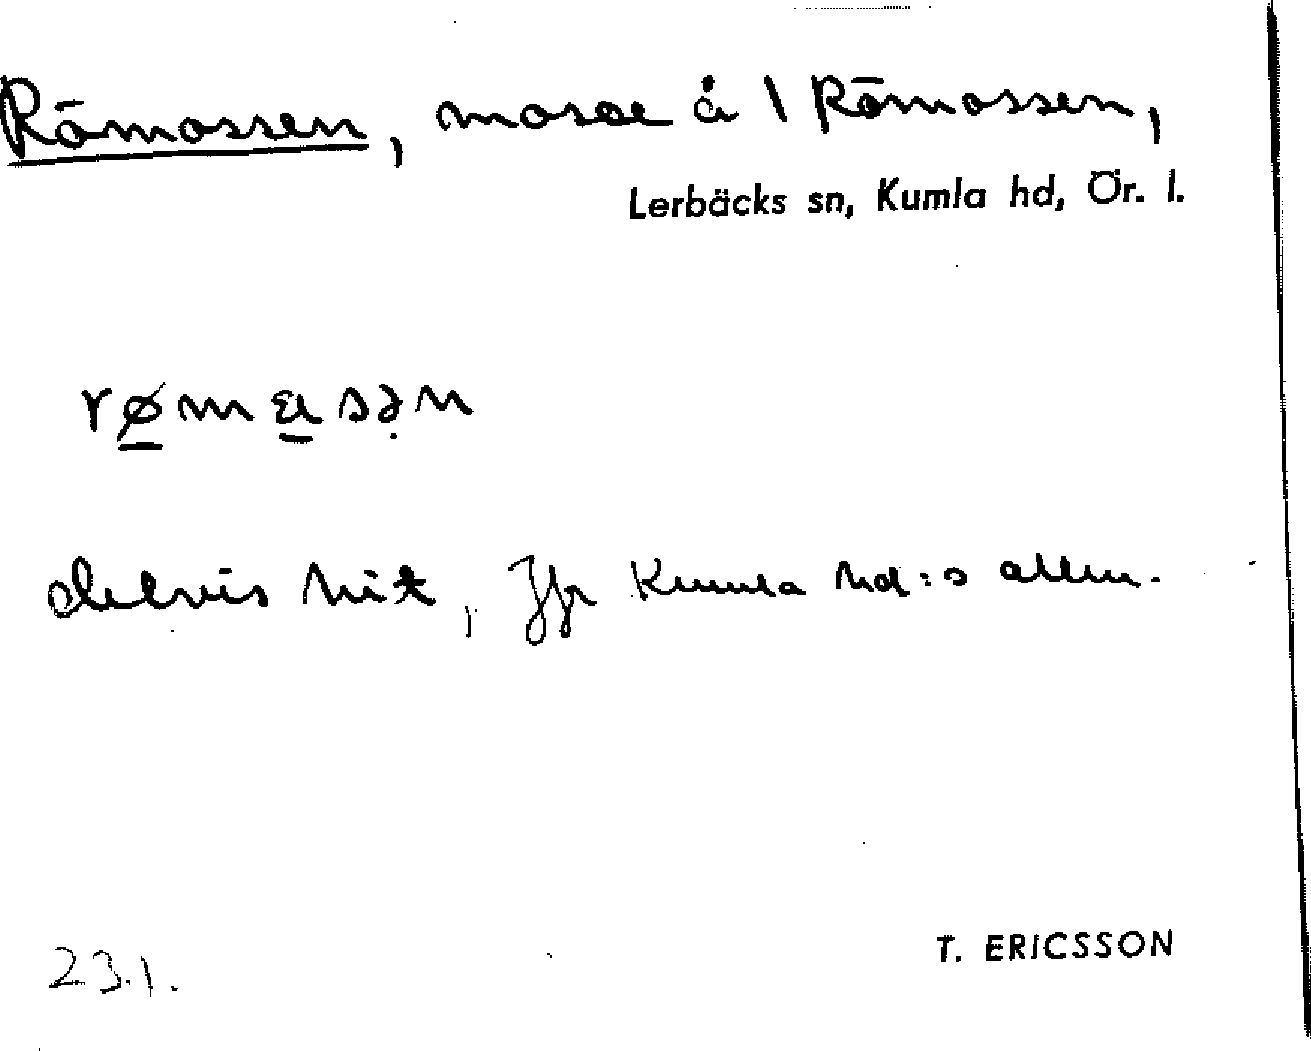 Römossen, mosse å 1 Römossen,
Lerbäcks sn, Kumla hd, Ör. l.
delvis hit, Jfr Kumla hd:s allm.
23.1.
T. ERICSSON